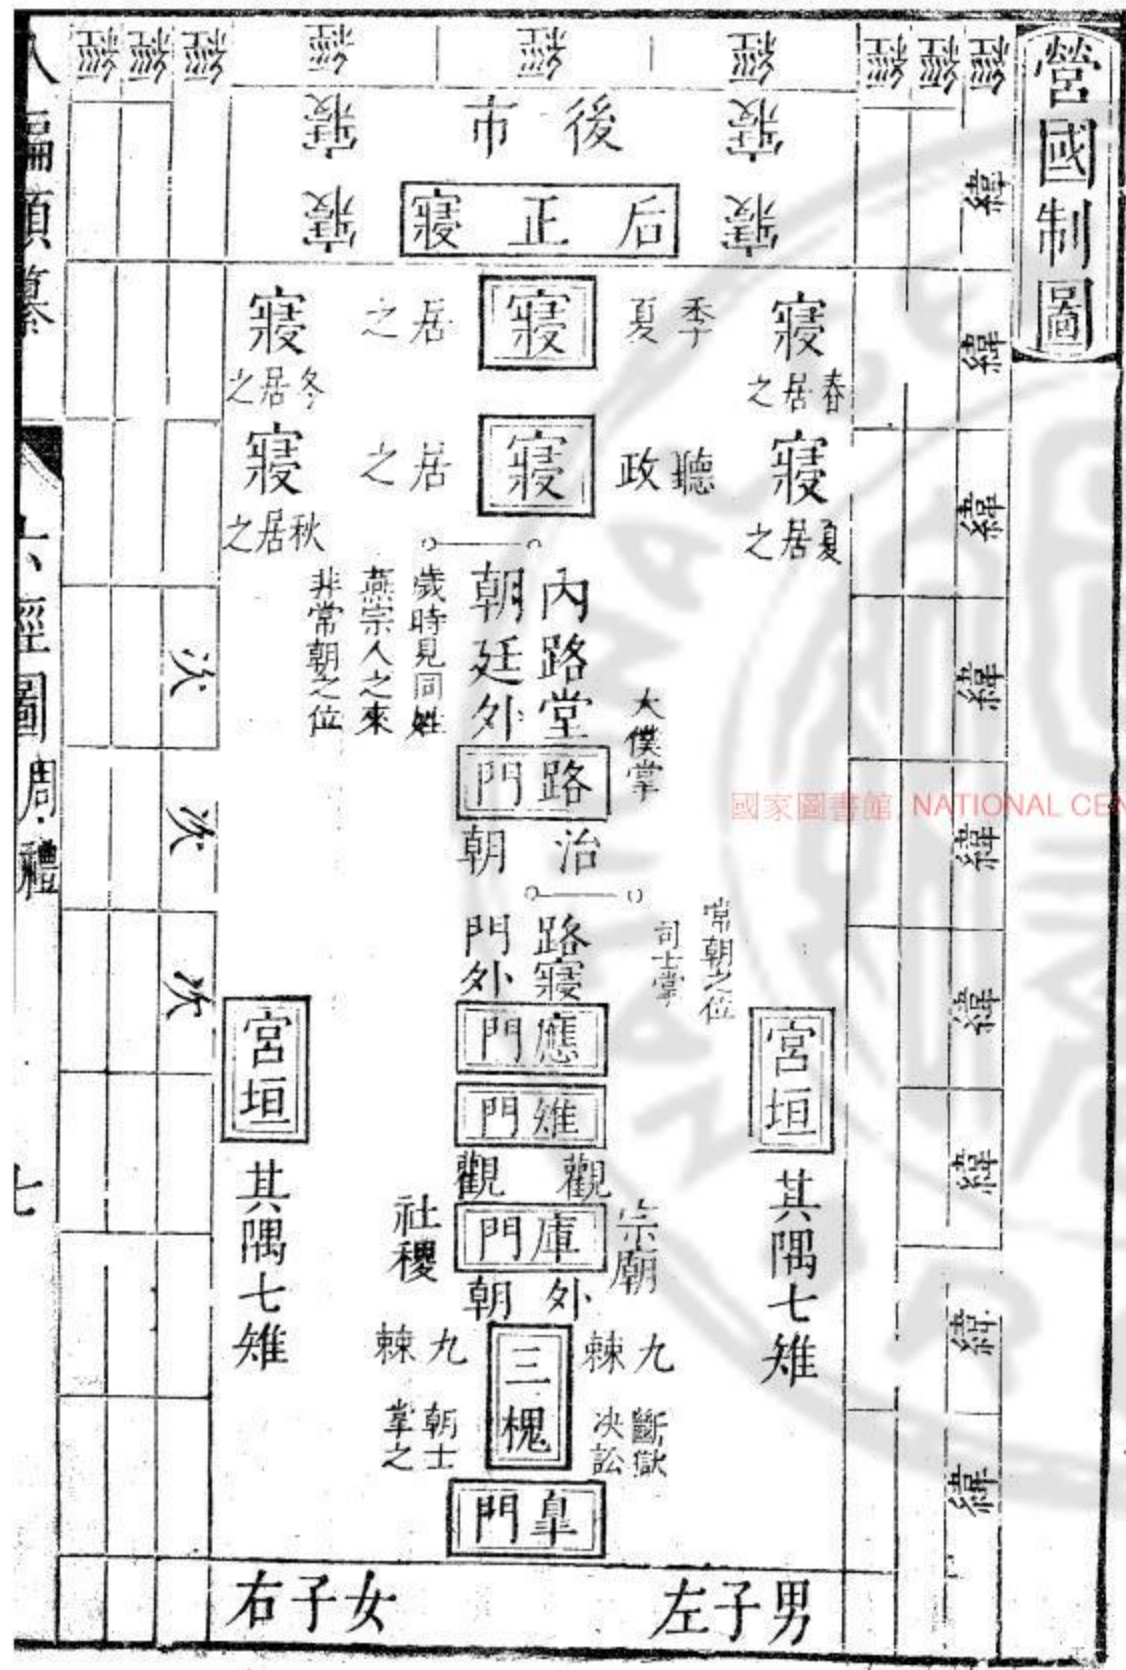 營國制圖
經 經 經 經 經 經 經 經 經
緯 緯 緯 緯 緯 緯 緯 緯 緯
後市
寢 寢
后正寢
寢 寢
寢
春居之
季夏
寢
居之
寢
冬居之
寢
夏居之
聽政
寢
居之
寢
秋居之
內路堂
朝廷外
歲時見同姓
燕宗人之來
非常朝之位
大僕掌
路門
治朝
路寢
門外
常朝之位
司士掌
應門
雉門
觀 觀
宗廟
庫門
社稷
外朝
九棘
三槐
九棘
斷獄
決訟
朝士
掌之
皐門
宮垣
其隅七雉
宮垣
其隅七雉
次
次
次
男子左
女子右
八編類纂
六經圖
周禮
七
國家圖書館 NATIONAL CEN